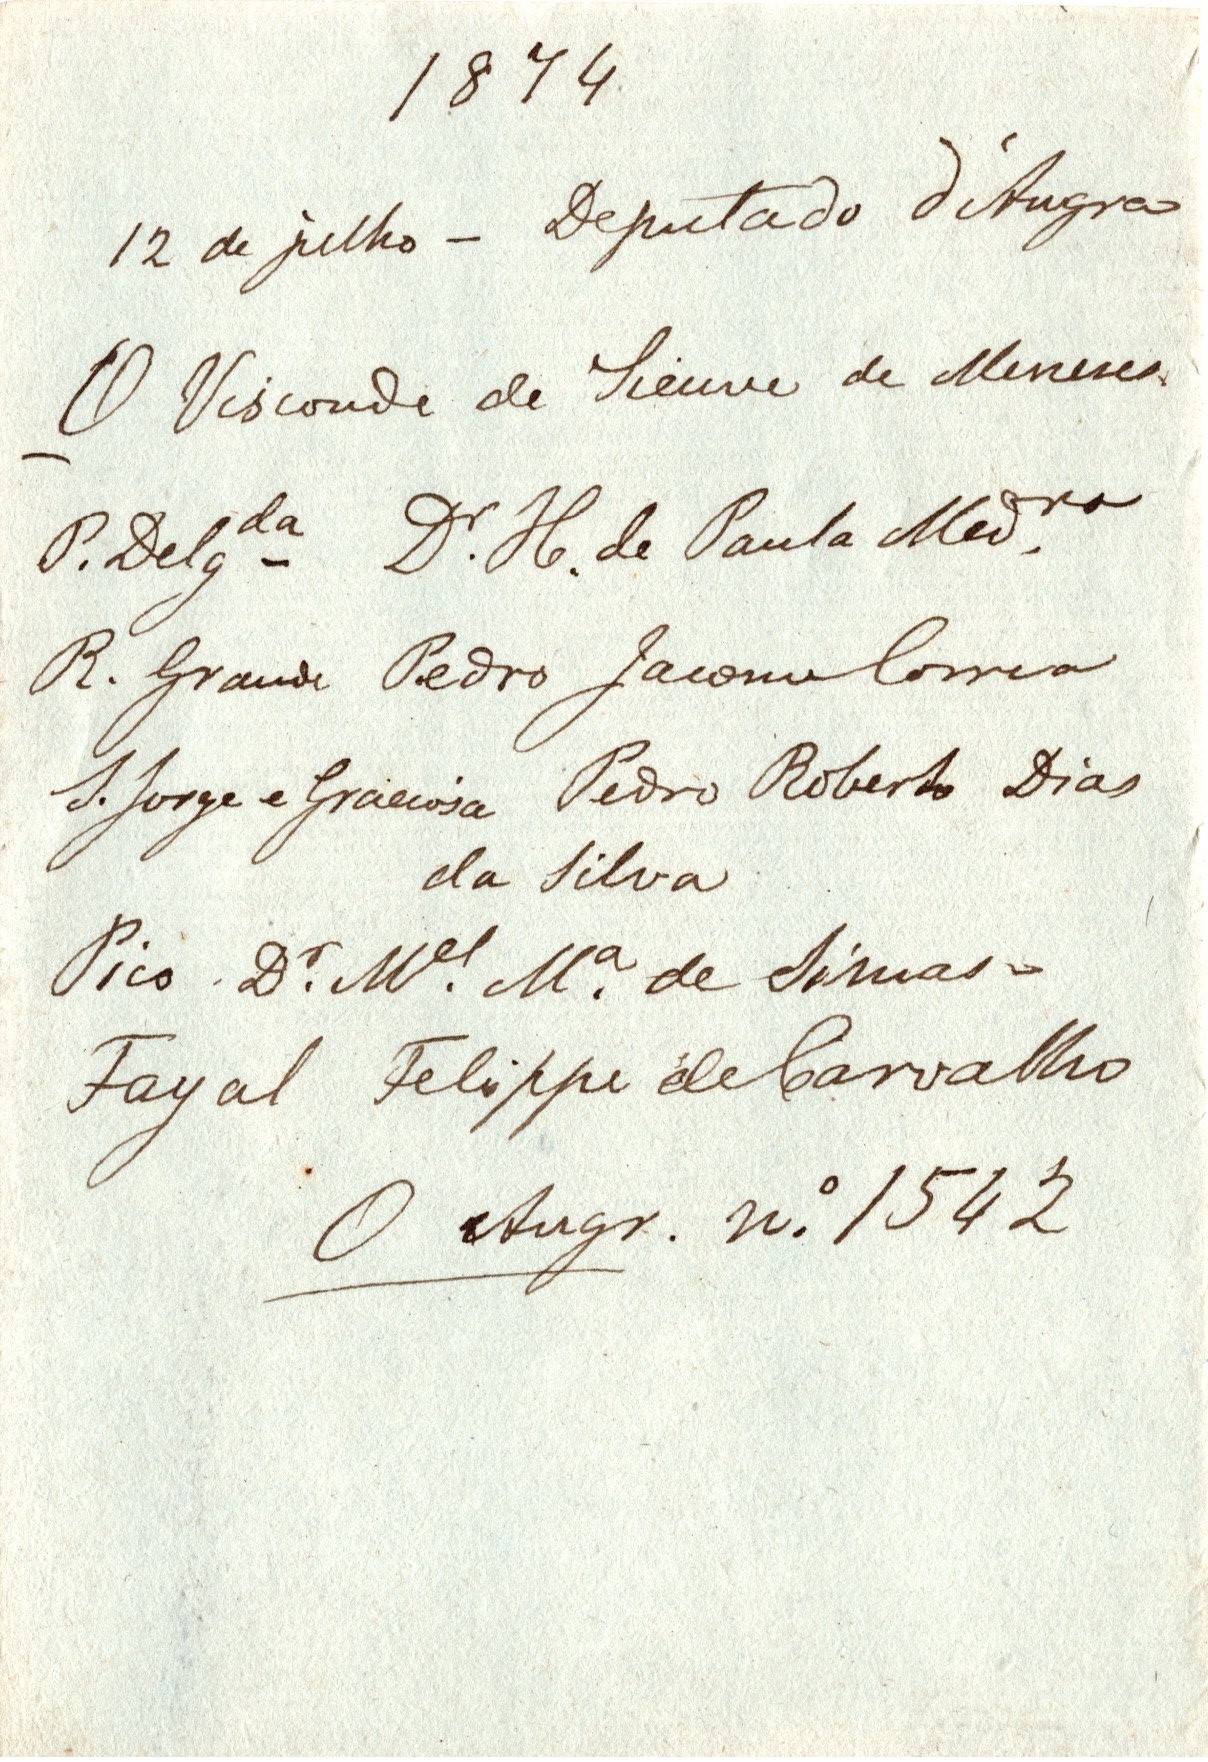 1874
12 de julho – Deputado d'Angra
O Visconde de Sieuve de Meneses.
P. Delg.da – Dr. H. de Paula Med.ro
R. Grande Pedro Jacome Correa
S. Jorge e Graciosa Pedro Roberto Dias
da Silva
Pico Dr. M.el M.a de Simas –
Fayal Felippe de Carvalho
O Angr. n.º 1542